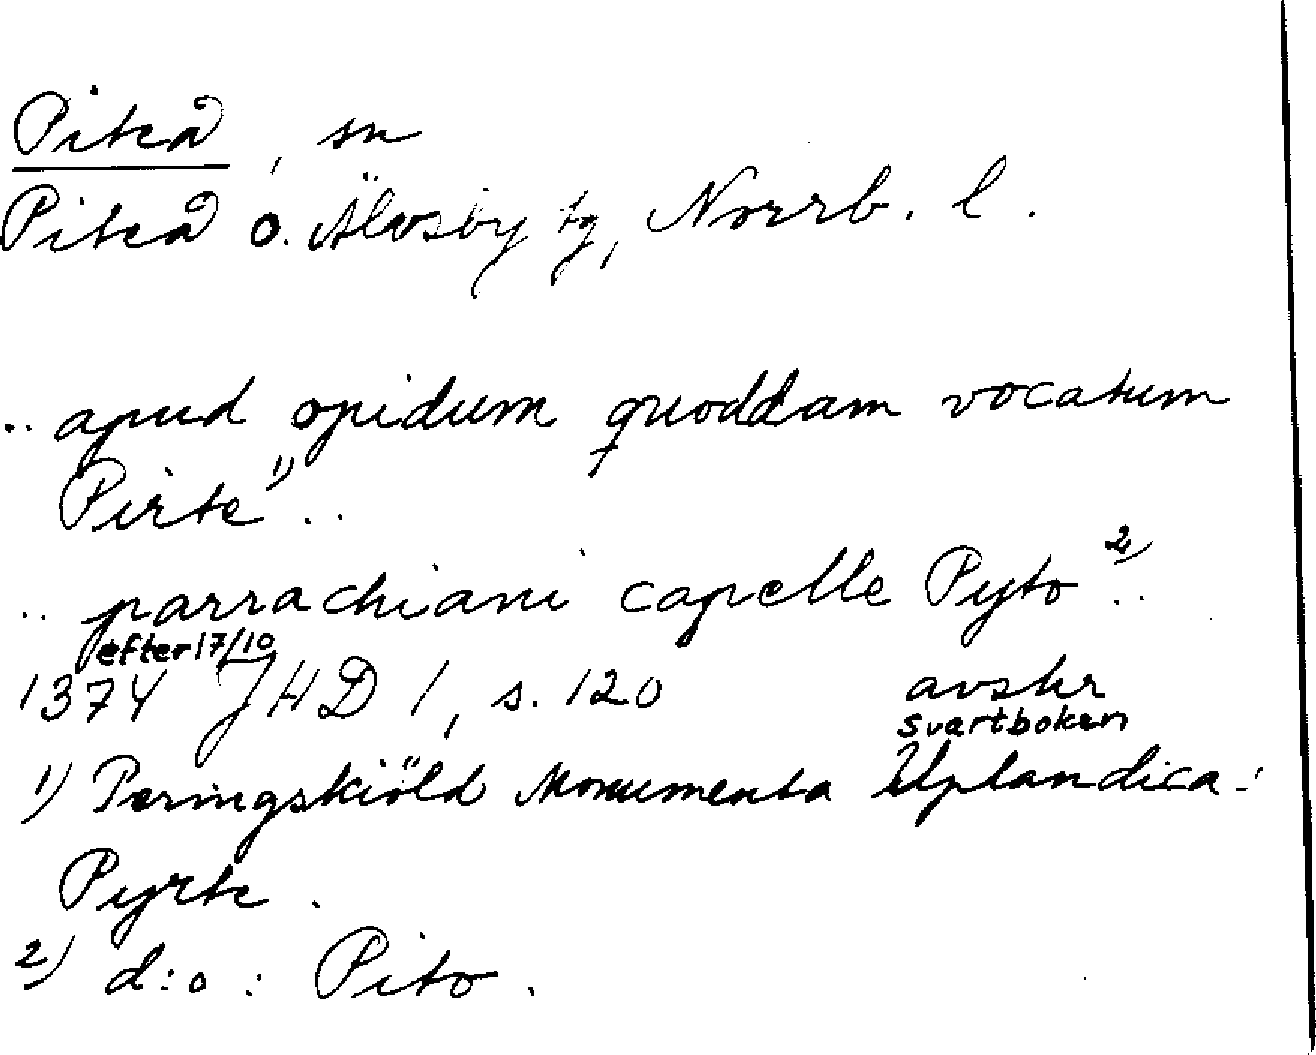 Piteå, sn
Piteå o. Älvsby tg, Norrb. l.
.. apud opidum quoddam vocatum
Pirte 1) ..
.. parrachiani capelle Pyto 2) ..
efter 17/10
1374 JHD 1, s. 120 avskr
svartboken
1) Peringskiöld Monumenta Uplandica:
Pyrte.
2) d:o: Pito.